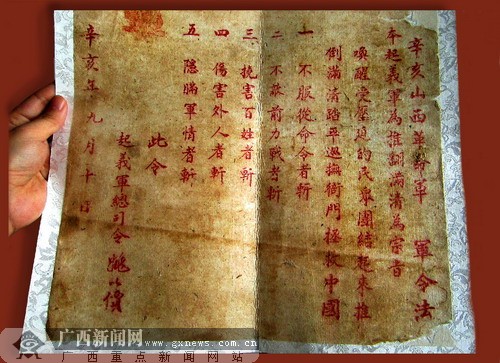 辛亥山西革命軍　軍令法
本起義軍為推翻滿清為宗旨
喚醒受壓迫的民眾團結起來推
倒滿清踏平巡撫衙門拯救中國
一　不服從命令者斬
二　不敢前力戰者斬
三　擾害百姓者斬
四　傷害外人者斬
五　隱瞞軍情者斬
此令
起義軍總司令　姚以價
辛亥年九月十日
广西新闻网
www.gxnews.com.cn
广西重点新闻网站